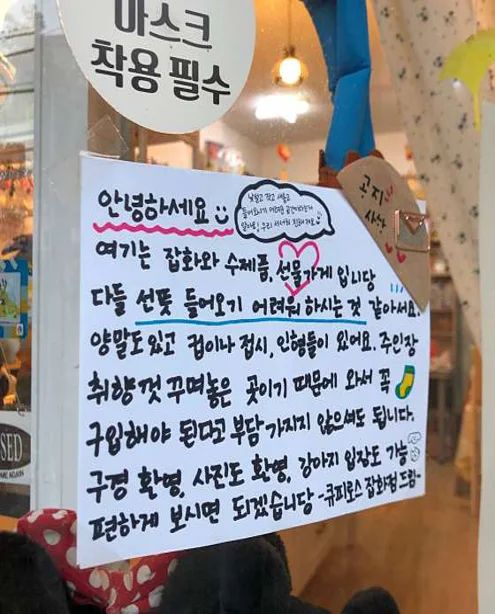 마스크
착용 필수
안녕하세요
낯설고 작고 새롭고
들어오기 어려운 공간이라는거
공지
사항
여기는 잡화와 수제품, 선물가게 입니당
다들 선뜻 들어오기 어려워 하시는 것 같아서요.
양말도 있고 컵이나 접시, 인형들이 있어요. 주인장
취향껏 꾸며놓은 곳이기 때문에 와서 꼭
구입해야 된다고 부담 가지지 않으셔도 됩니다.
구경 환영, 사진도 환영, 강아지 입장도 가능
편하게 보시면 되겠습니당 -큐피로스 잡화점 드림-
SED